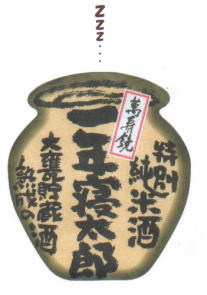 ZZZ....
萬寿鏡
特別
純米酒
三年寝太郎
大甕貯蔵
熟成の酒